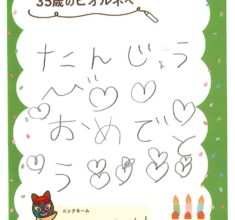 35歳のピオルネへ
たんじょう
び
おめでと
う
ニックネーム